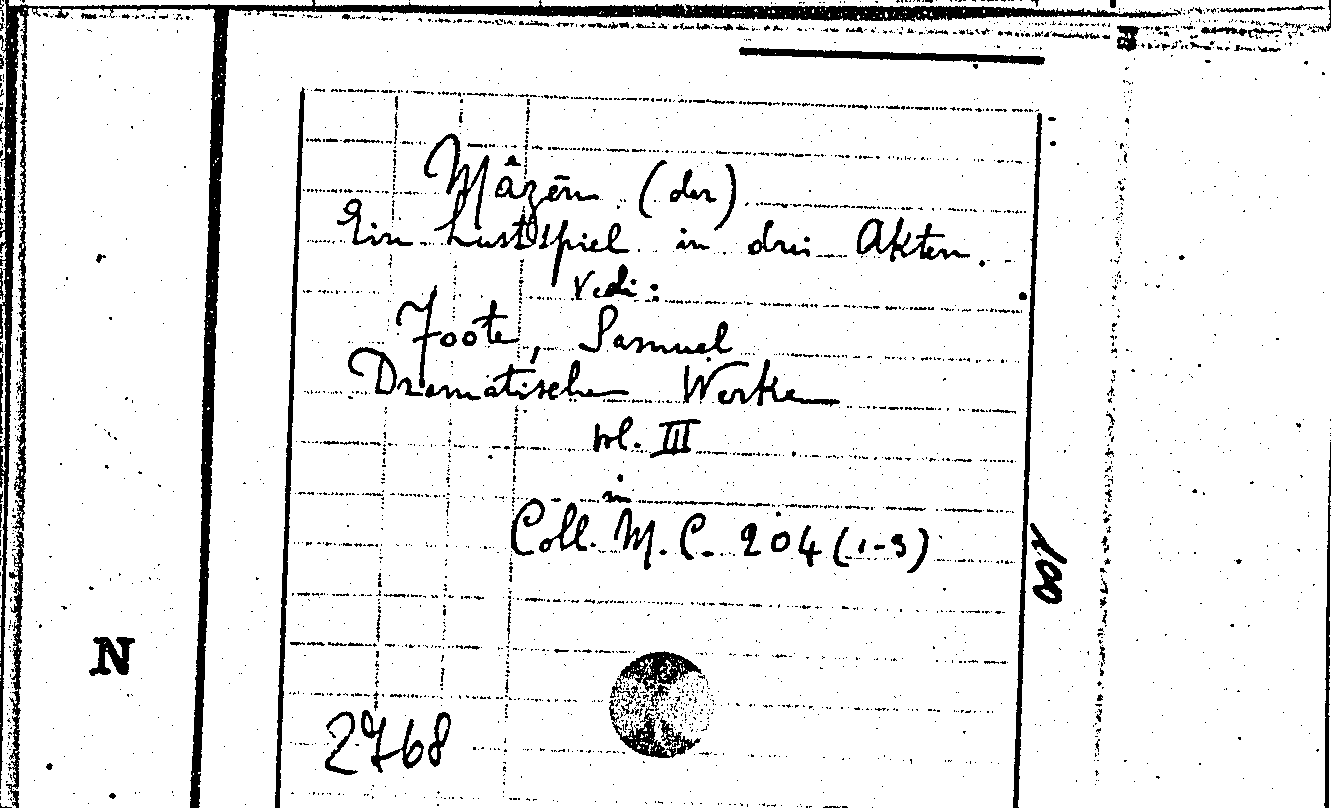 Mâzēn (der)
Ein Lustspiel in drei Akten.
Vedi:
Foote, Samuel
Dramatischen Werken
vol. III
in
Coll. M. C. 204 (1-3)
100
N
2768